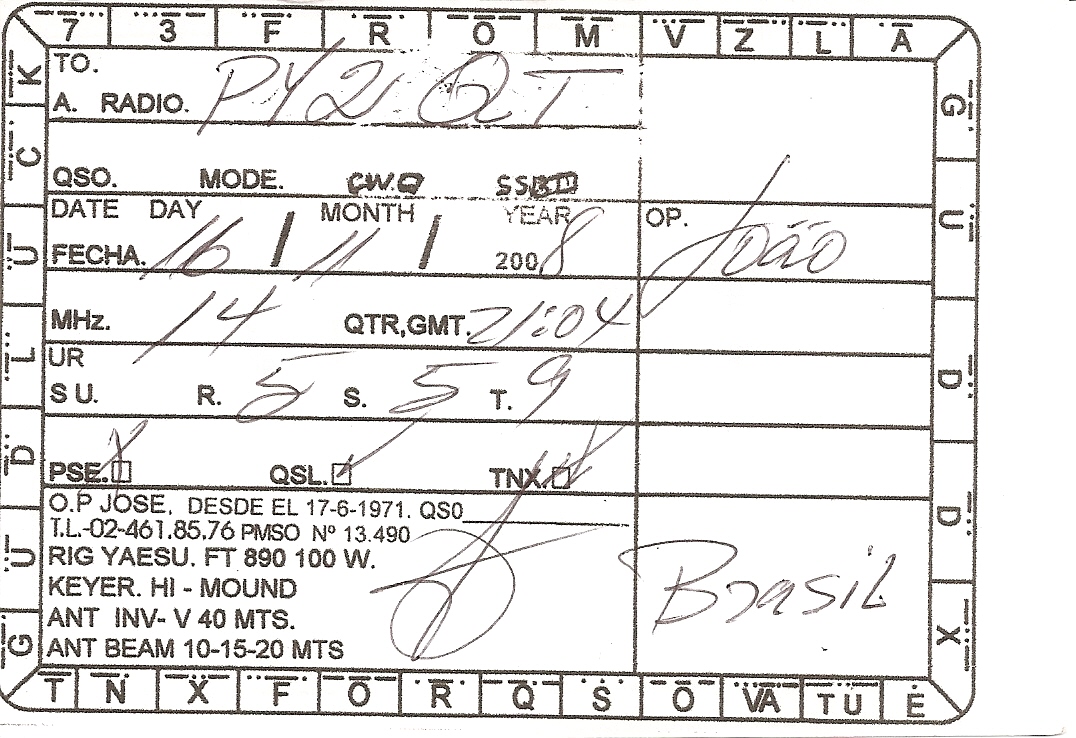 7 3 F R O M V Z L A
K C U L D U G
G U D D X
TO.
A. RADIO. PY2 QT
QSO. MODE. CW.
DATE DAY MONTH YEAR OP. João
FECHA. 16 / 11 / 2008
MHz. 14 QTR,GMT. 21:04
UR
S U. R. 5 S. 5 T. 9
PSE. QSL. TNX.
O.P JOSE. DESDE EL 17-6-1971. QSO
T.L.-02-461.85.76 PMSO Nº 13.490
RIG YAESU. FT 890 100 W.
KEYER. HI - MOUND
ANT INV- V 40 MTS.
ANT BEAM 10-15-20 MTS
Brasil
T N X F O R Q S O VA TU E